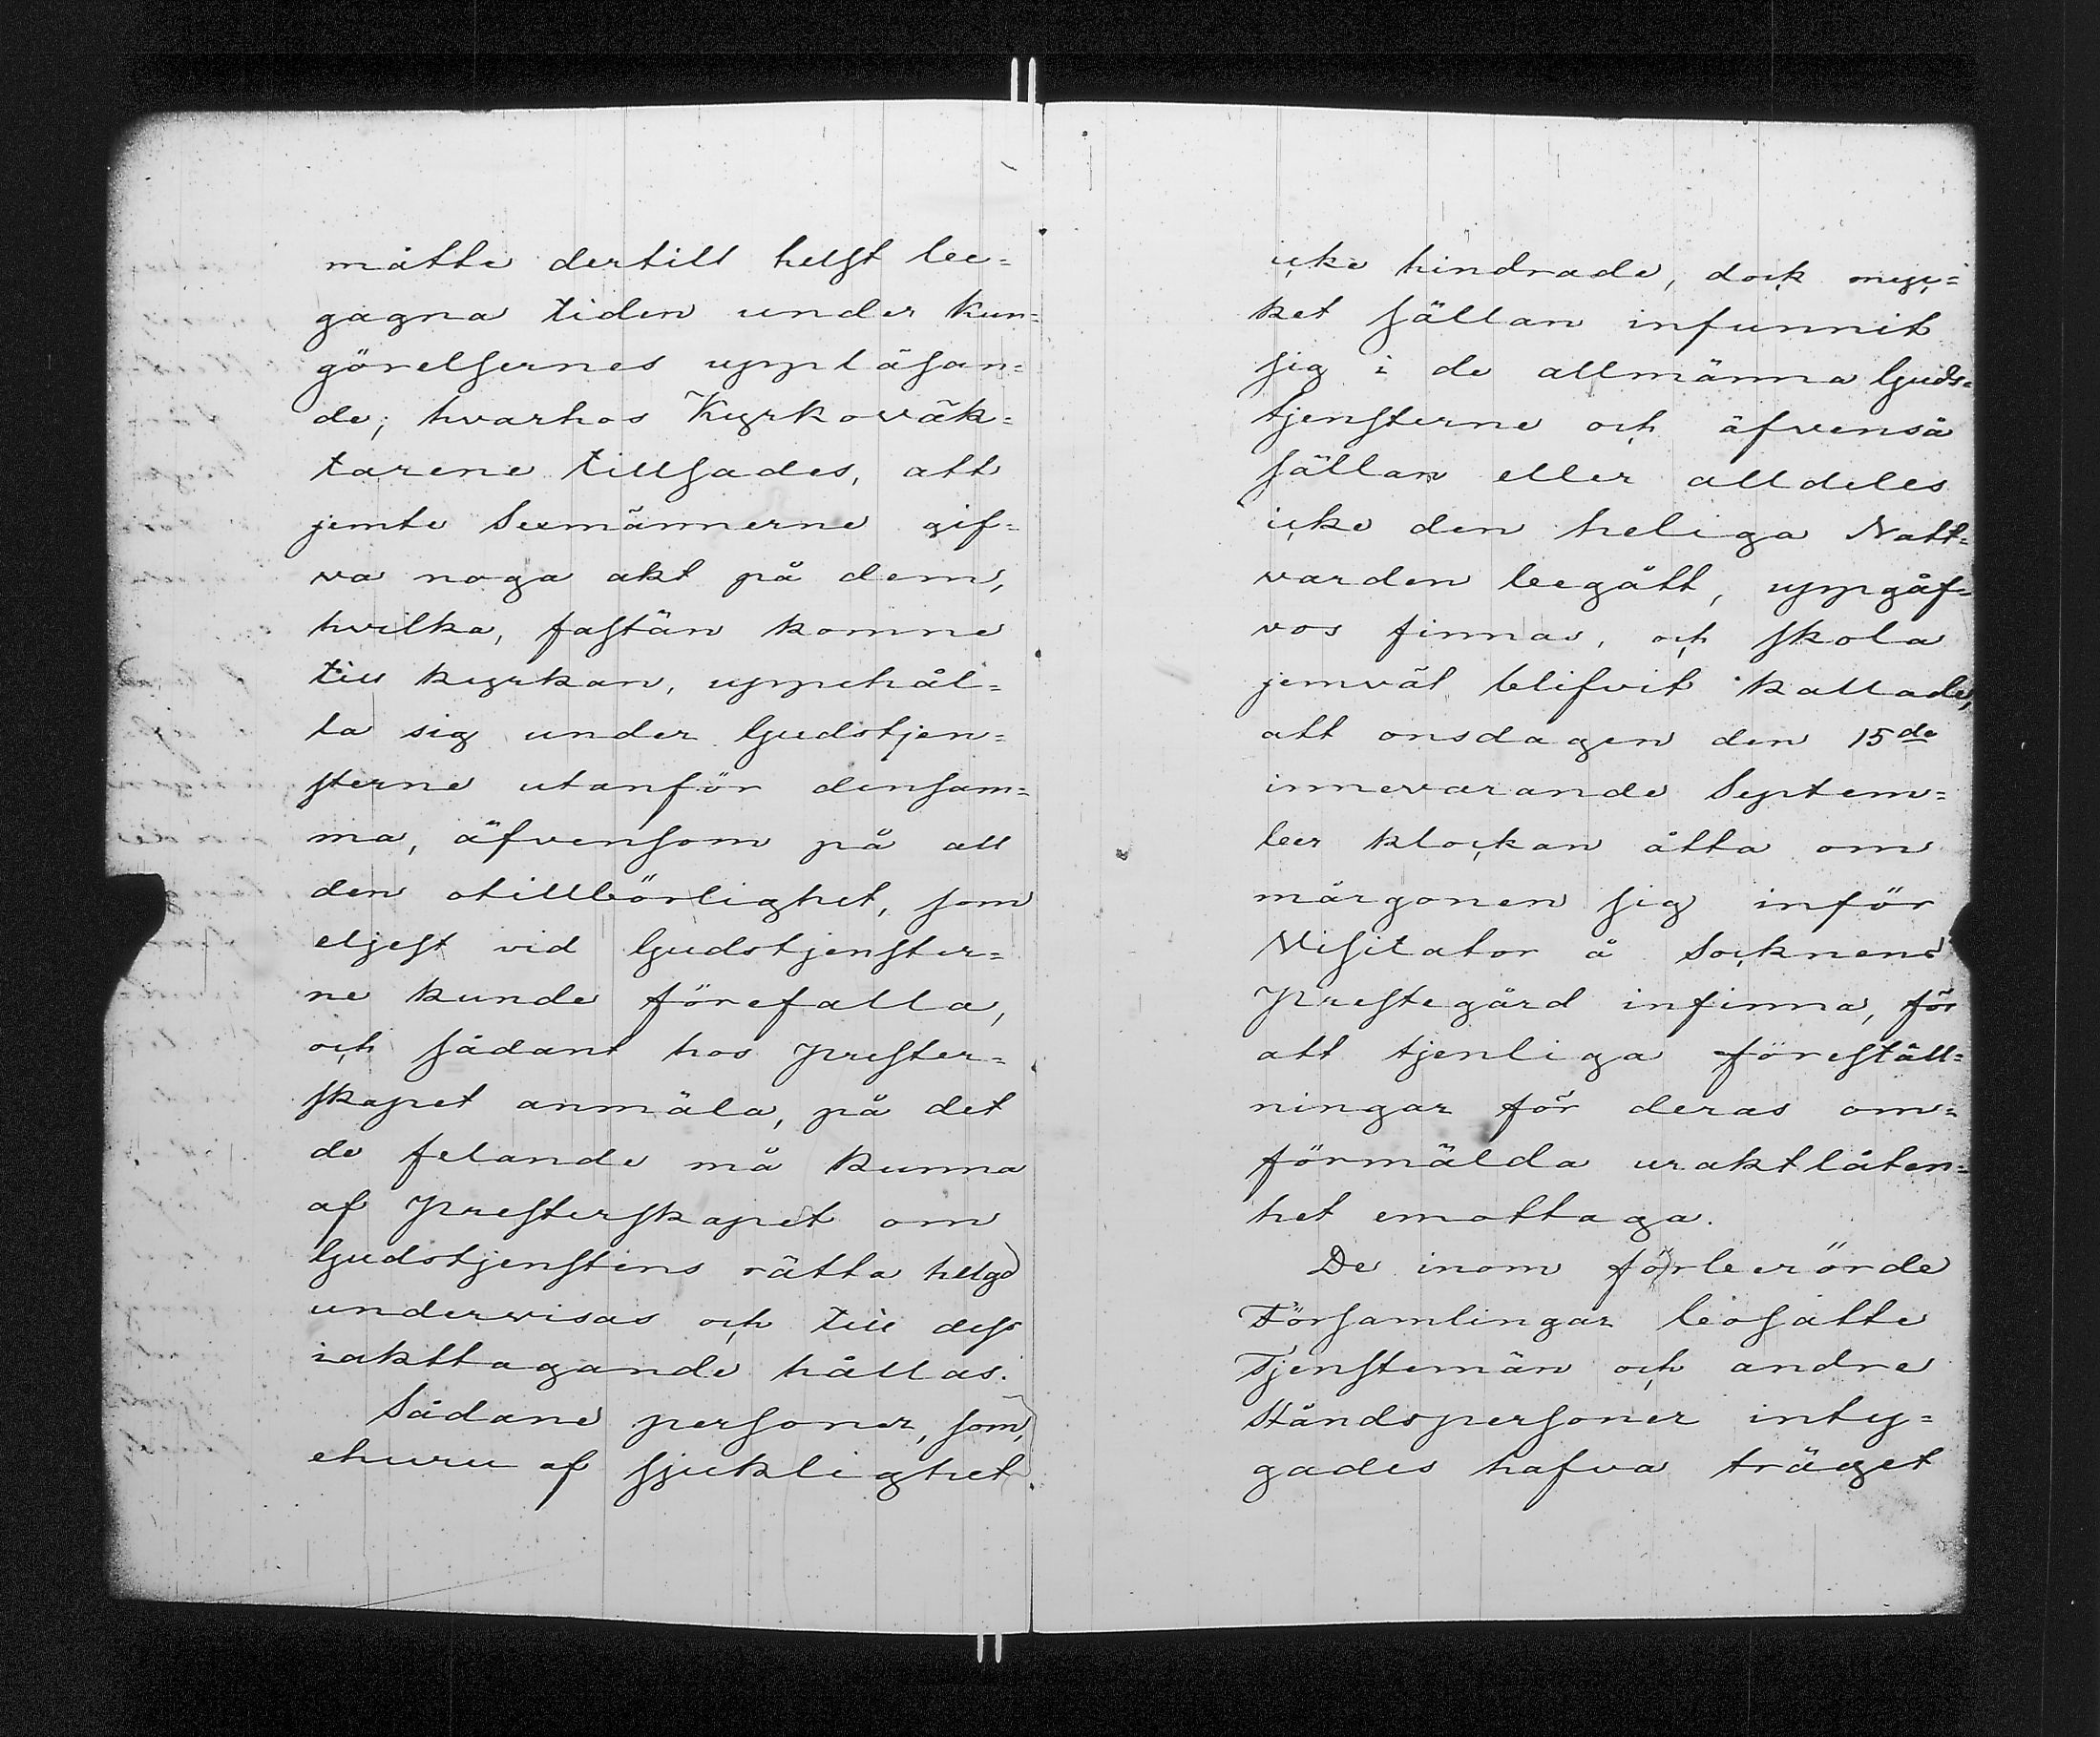 måtte dertill helst be=
gagna tiden under kun=
görelsernes uppläsan=
de; hvarhos Kyrkoväk=
tarene tillsades, att
jemte Sexmännerne gif=
va noga akt på dem,
hvilka, fastän komne
till kyrkan, uppehål=
la sig under Gudstjen=
sterne utanför densam=
ma, äfvensom på all
den otillbörlighet, som
eljest vid Gudstjenster=
ne kunde förefalla,
och sådant hos Prester=
skapet anmäla, på det
de felande må kunna
af Presterskapet om
Gudstjenstens rätta helgd
undervisas och till dess
iakttagande hållas.
Sådane personer, som,
ehuru af sjuklighet
icke hindrade, dock myc=
ket sällan infunnit
sig i de allmänna Guds=
tjensterne och äfvenså
sällan eller alldeles
icke den heliga Natt=
varden begått, uppgåf=
vos finnas, och skola
jemväl blifvit kallade,
att onsdagen den 15de
innevarande Septem=
ber klockan åtta om
mårgonen sig inför
Visitator å Socknens
Prestegård infinna, för
att tjenliga föreställ=
ningar för deras om=
förmälda uraktlåten=
het emottaga.
De inom förberörde
Församlingar bosatte
Tjenstemän och andre
Ståndspersoner inty=
gades hafva träget